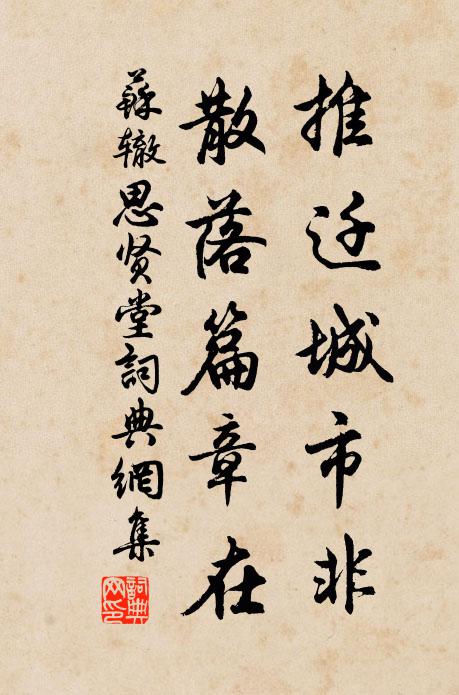 推迁城市非
散落篇章在
蘇辙思贤堂詞典網集
詞典网印